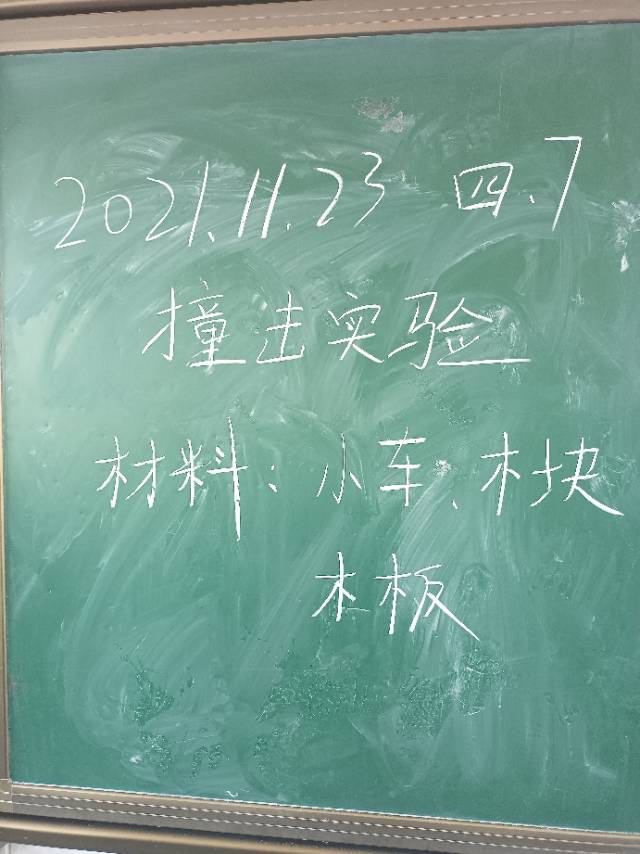 2021.11.23 四.7
撞击实验
材料：小车、木块
木板